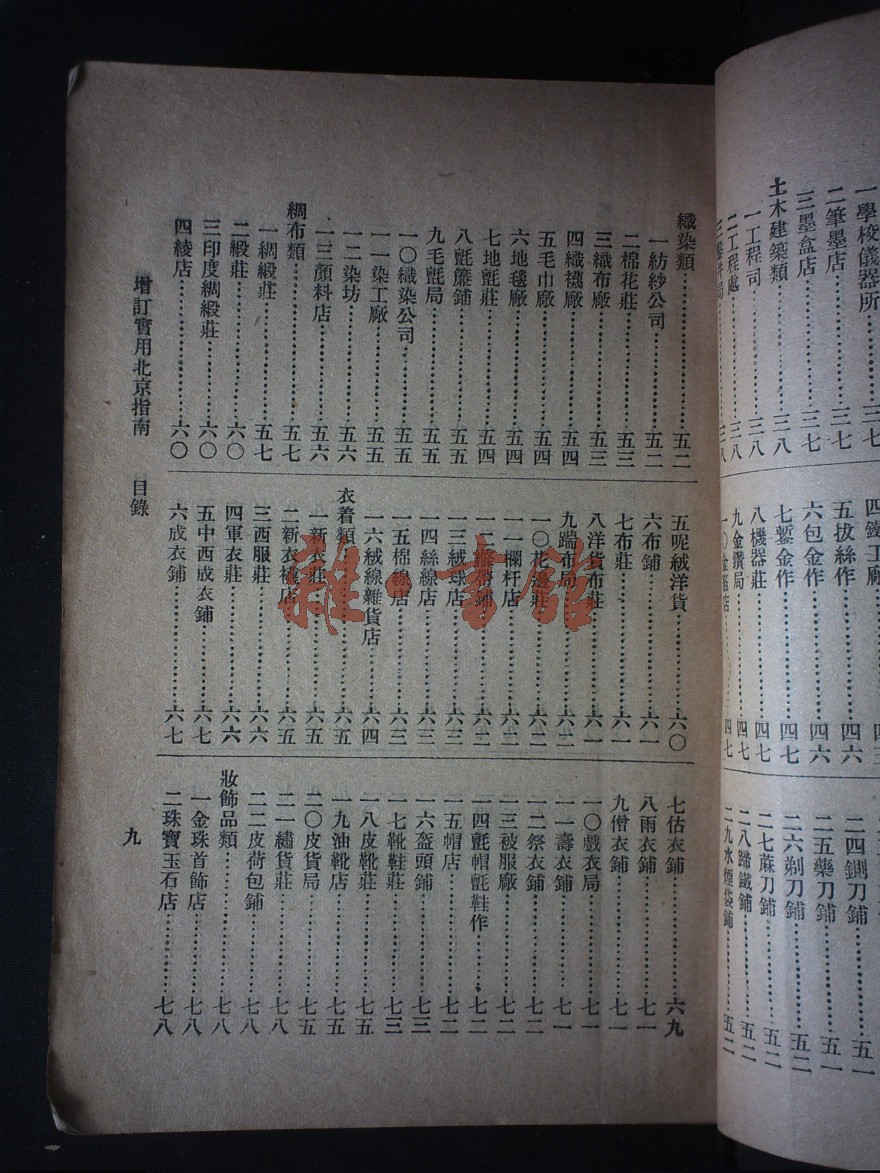 織染類……五二
一紡紗公司……五二
二棉花莊……五三
三織布廠……五三
四織襪廠……五四
五毛巾廠……五四
六地毯廠……五四
七地氈莊……五四
八氈簾鋪……五五
九毛氈局……五五
一〇織染公司……五五
一一染工廠……五五
一二染坊……五六
一三顏料店……五六
綢布類……五七
一綢緞莊……五七
二緞莊……六〇
三印度綢緞莊……六〇
四綾店……六〇
五呢絨洋貨……六〇
六布鋪……六一
七布莊……六一
八洋貨布莊……六一
九踹布局……六二
一〇花邊莊……六二
一一欄杆店……六二
一二縧帶鋪……六二
一三絨球店……六三
一四絲線店……六三
一五棉線店……六三
一六絨線雜貨店……六四
衣着類……六五
一新衣莊……六五
二新衣店……六五
三西服莊……六六
四軍衣莊……六六
五中西成衣鋪……六七
六成衣鋪……六七
七估衣鋪……六九
八雨衣鋪……七一
九僧衣鋪……七一
一〇戲衣局……七一
一一壽衣鋪……七一
一二祭衣鋪……七二
一三被服廠……七二
一四氈帽氈鞋作……七二
一五帽店……七二
一六盔頭鋪……七三
一七靴鞋莊……七三
一八皮靴莊……七五
一九油靴店……七五
二〇皮貨局……七五
二一繡貨莊……七八
二二皮荷包鋪……七八
妝飾品類……七八
一金珠首飾店……七八
二珠寶玉石店……七八
增訂實用北京指南 目錄
九
雜·書館
一學校儀器所……三七
二筆墨店……三七
三墨盒店……三七
土木建築類……三八
一工程司……三八
二工程處……三八
四鐵工廠
五拔絲作……四六
六包金作……四六
七鏨金作……四七
八機器莊……四七
九金鑽局……四七
一〇金箔店……四七
二四鍘刀鋪……五一
二五藥刀鋪……五一
二六剃刀鋪……五二
二七蔴刀鋪……五二
二八蹄鐵鋪……五二
二九水煙袋鋪……五二